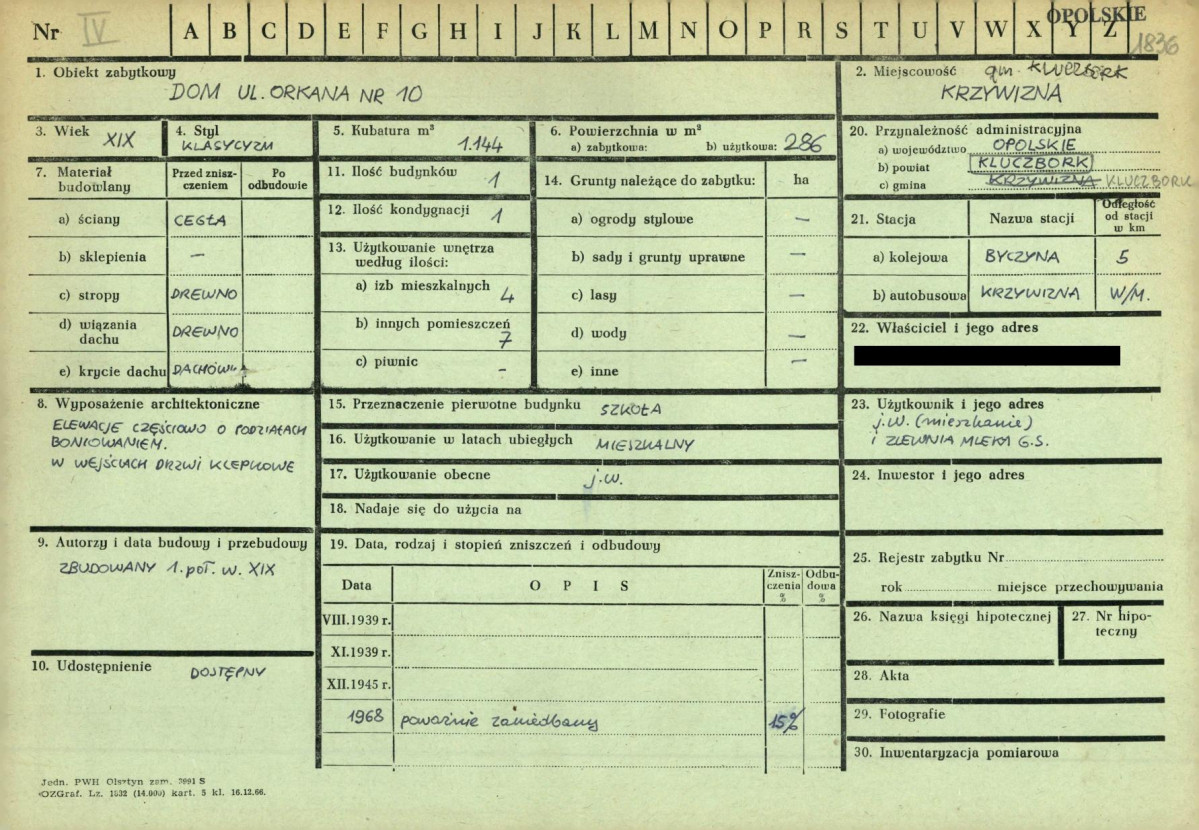 OPOLSKIE
Nr IV A B C D E F G H I J K L M N O P R S T U V W X Y Z 1836
1. Obiekt zabytkowy
DOM UL. ORKANA NR 10
2. Miejscowość gm. KLUCZBORK
KRZYWIZNA
3. Wiek
XIX
4. Styl
KLASYCYZM
5. Kubatura m³
1.144
6. Powierzchnia w m²
a) zabytkowa: b) użytkowa: 286
20. Przynależność administracyjna
a) województwo OPOLSKIE
b) powiat KLUCZBORK
c) gmina KRZYWIZNA KLUCZBORK
7. Materiał budowlany
Przed znisz-
czeniem
Po
odbudowie
a) ściany CEGŁA
b) sklepienia —
c) stropy DREWNO
d) wiązania
dachu DREWNO
e) krycie dachu DACHÓWK
11. Ilość budynków 1
12. Ilość kondygnacji 1
13. Użytkowanie wnętrza
według ilości:
a) izb mieszkalnych 4
b) innych pomieszczeń
7
c) piwnic -
14. Grunty należące do zabytku: ha
a) ogrody stylowe —
b) sady i grunty uprawne —
c) lasy —
d) wody —
e) inne —
21. Stacja Nazwa stacji Odległość
od stacji
w km
a) kolejowa BYCZYNA 5
b) autobusowa KRZYWIZNA W/M.
22. Właściciel i jego adres
8. Wyposażenie architektoniczne
ELEWACJE CZĘŚCIOWO O PODZIAŁACH
BONIOWANIEM.
W WEJŚCIACH DRZWI KLEPKOWE
15. Przeznaczenie pierwotne budynku SZKOŁA
16. Użytkowanie w latach ubiegłych MIESZKALNY
17. Użytkowanie obecne j.w.
18. Nadaje się do użycia na
23. Użytkownik i jego adres
j.w. (mieszkanie)
i ZLEWNIA MLEKA G.S.
24. Inwestor i jego adres
9. Autorzy i data budowy i przebudowy
ZBUDOWANY 1. poł. w. XIX
19. Data, rodzaj i stopień zniszczeń i odbudowy
Data OPIS Znisz-
czenia
%
Odbu-
dowa
%
VIII.1939 r.
XI.1939 r.
XII.1945 r.
1968 poważnie zaniedbany 15%
10. Udostępnienie DOSTĘPNY
25. Rejestr zabytku Nr
rok miejsce przechowywania
26. Nazwa księgi hipotecznej
27. Nr hipo-
teczny
28. Akta
29. Fotografie
30. Inwentaryzacja pomiarowa
Jedn. PWH Olsztyn zam. 7991 S
OZGraf. Lz. 1532 (14.000) kart. 5 kl. 16.12.66.